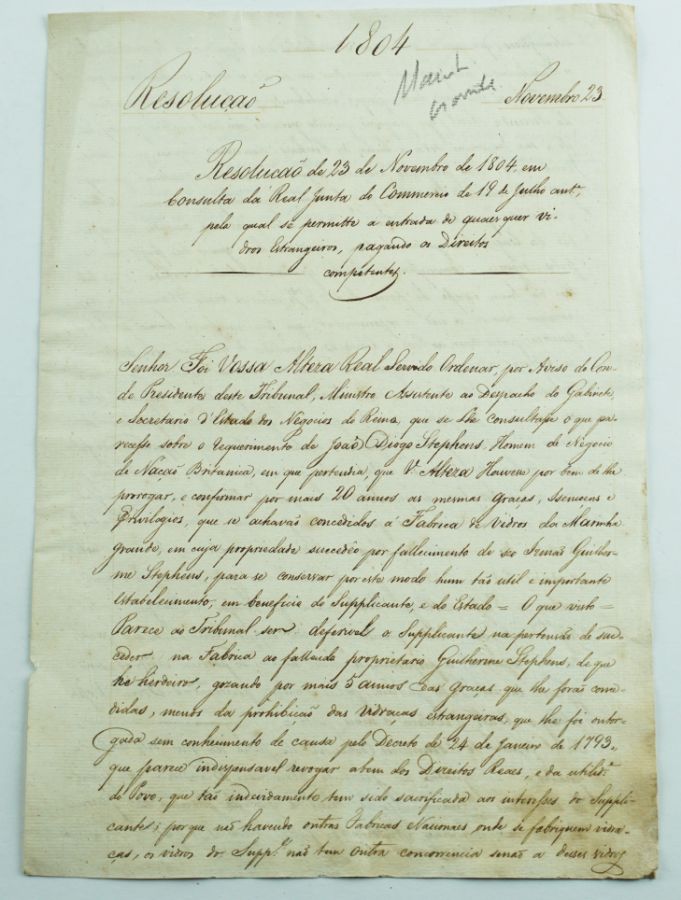 1804
Resolução
Marinha
Grande
Novembro 23
Resolução de 23 de Novembro de 1804, em
Consulta da Real Junta do Commercio de 19 de Julho antr.
pela qual se permitte a entrada de quaesquer vi-
dros Estrangeiros, pagando os Direitos
competentes.
Senhor Foi Vossa Alteza Real Servido Ordenar, por Aviso do Con-
de Presidente deste Tribunal, Ministro Assistente ao Despacho do Gabinete,
e Secretario d'Estado dos Negocios do Reino, que se Lhe consultasse o que pa-
recesse sobre o Requerimento de João Diogo Stephens, Homem de Negocio
de Nação Britanica, em que pertendia, que V. Alteza Houvesse por bem de lhe
prorogar, e confirmar por mais 20 annos as mesmas Graças, Isencoens e
Privilegios, que se achavão concedidos á Fabrica de Vidros da Marinha
grande, em cuja propriedade succedêo por fallecimento de seo Irmão Guilher-
me Stephens, para se conservar por este modo hum tão util e importante
estabelecimento, em beneficio do Supplicante, e do Estado = O que visto =
Parece ao Tribunal ser deferivel o Supplicante na pertensão de suc-
ceder na Fabrica ao fallecido proprietario Guilherme Stephens, de que
he herdeiro, gozando por mais 5 annos das graças que lhe forão conce-
didas, menos da prohibição das vidraças estrangeiras, que lhe foi outor-
gada sem conhecimento de causa pelo Decreto de 24 de Janeiro de 1793,
que parece indispensavel revogar a bem dos Direitos Reaes, e da utilide.
do Povo, que tão indevidamente tem sido sacrificada aos interesses do Suppli-
cante; porque não havendo outras Fabricas Nacionaes onde se fabriquem vidra-
ças, os vidros do Suppe. não tem outra concorrencia senão a desses vidros